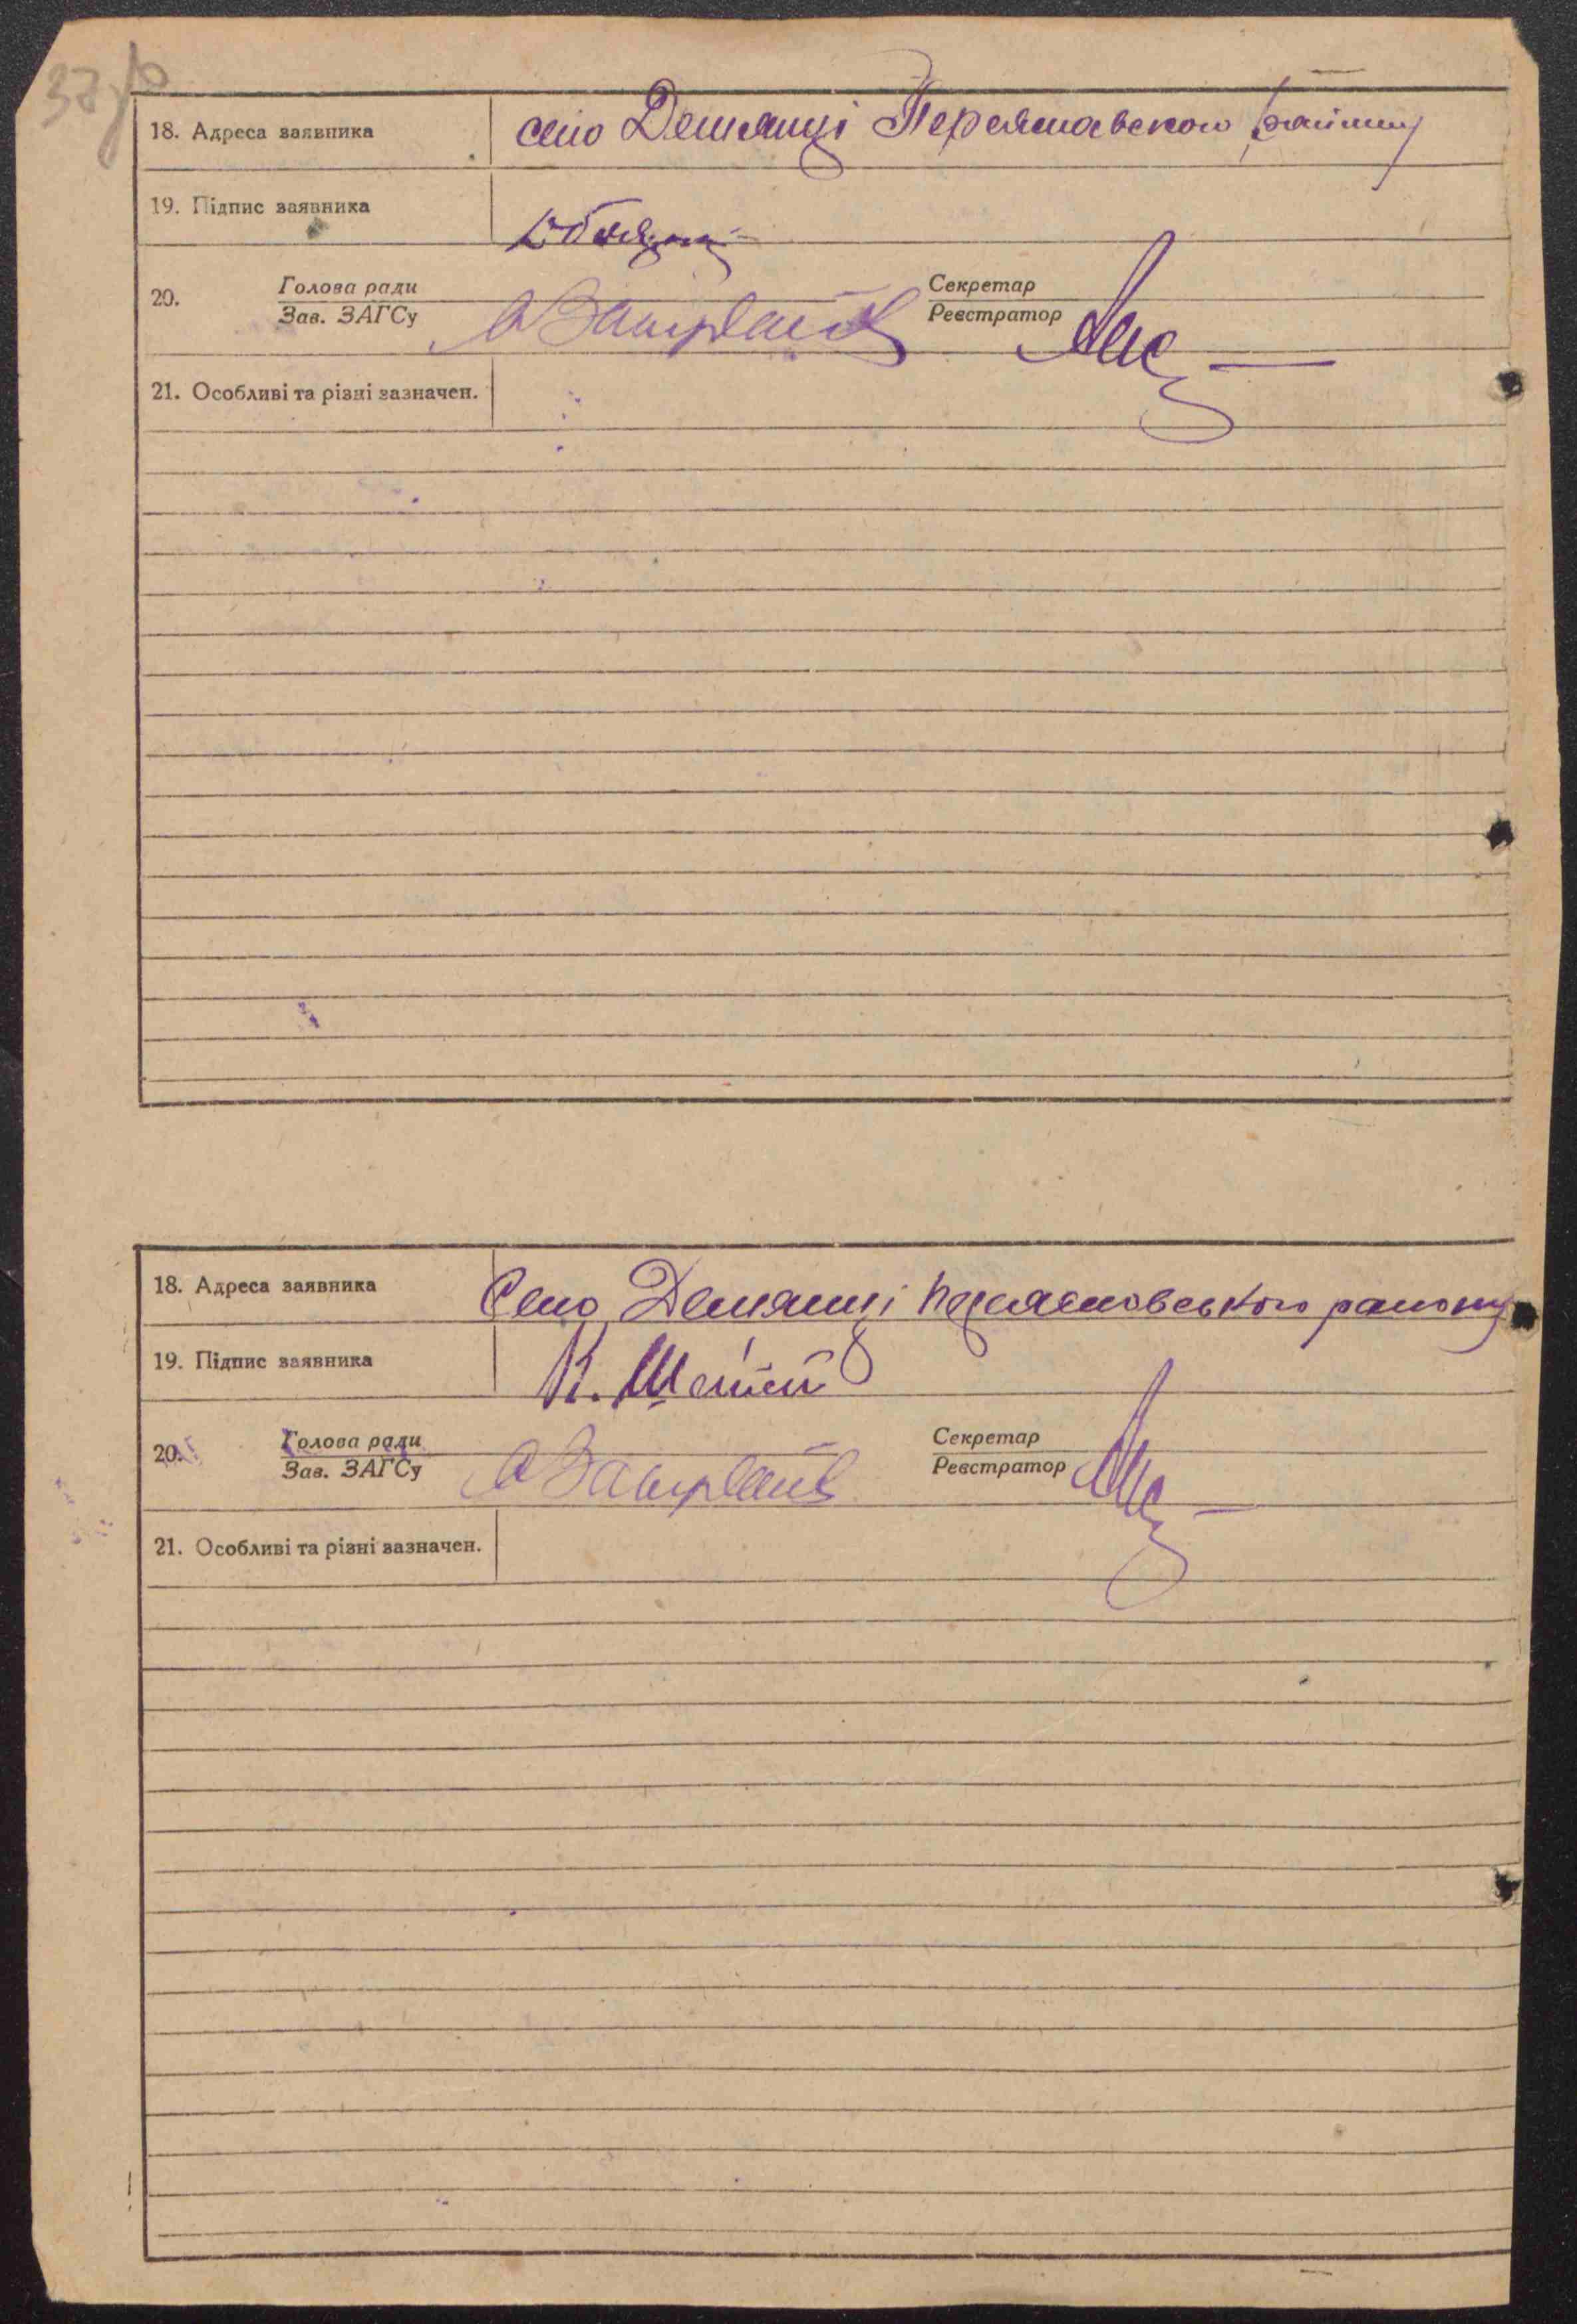 37
18. Адреса заявника село Демянці Переяславского району
19. Підпис заявника
20. Голова ради Секретар
Зав. ЗАГСу Реєстратор
21. Особливі та різні зазначен.
18. Адреса заявника Село Демянці Переяславського району
19. Підпис заявника К.
20. Голова ради Секретар
Зав. ЗАГСу Реєстратор
21. Особливі та різні зазначен.